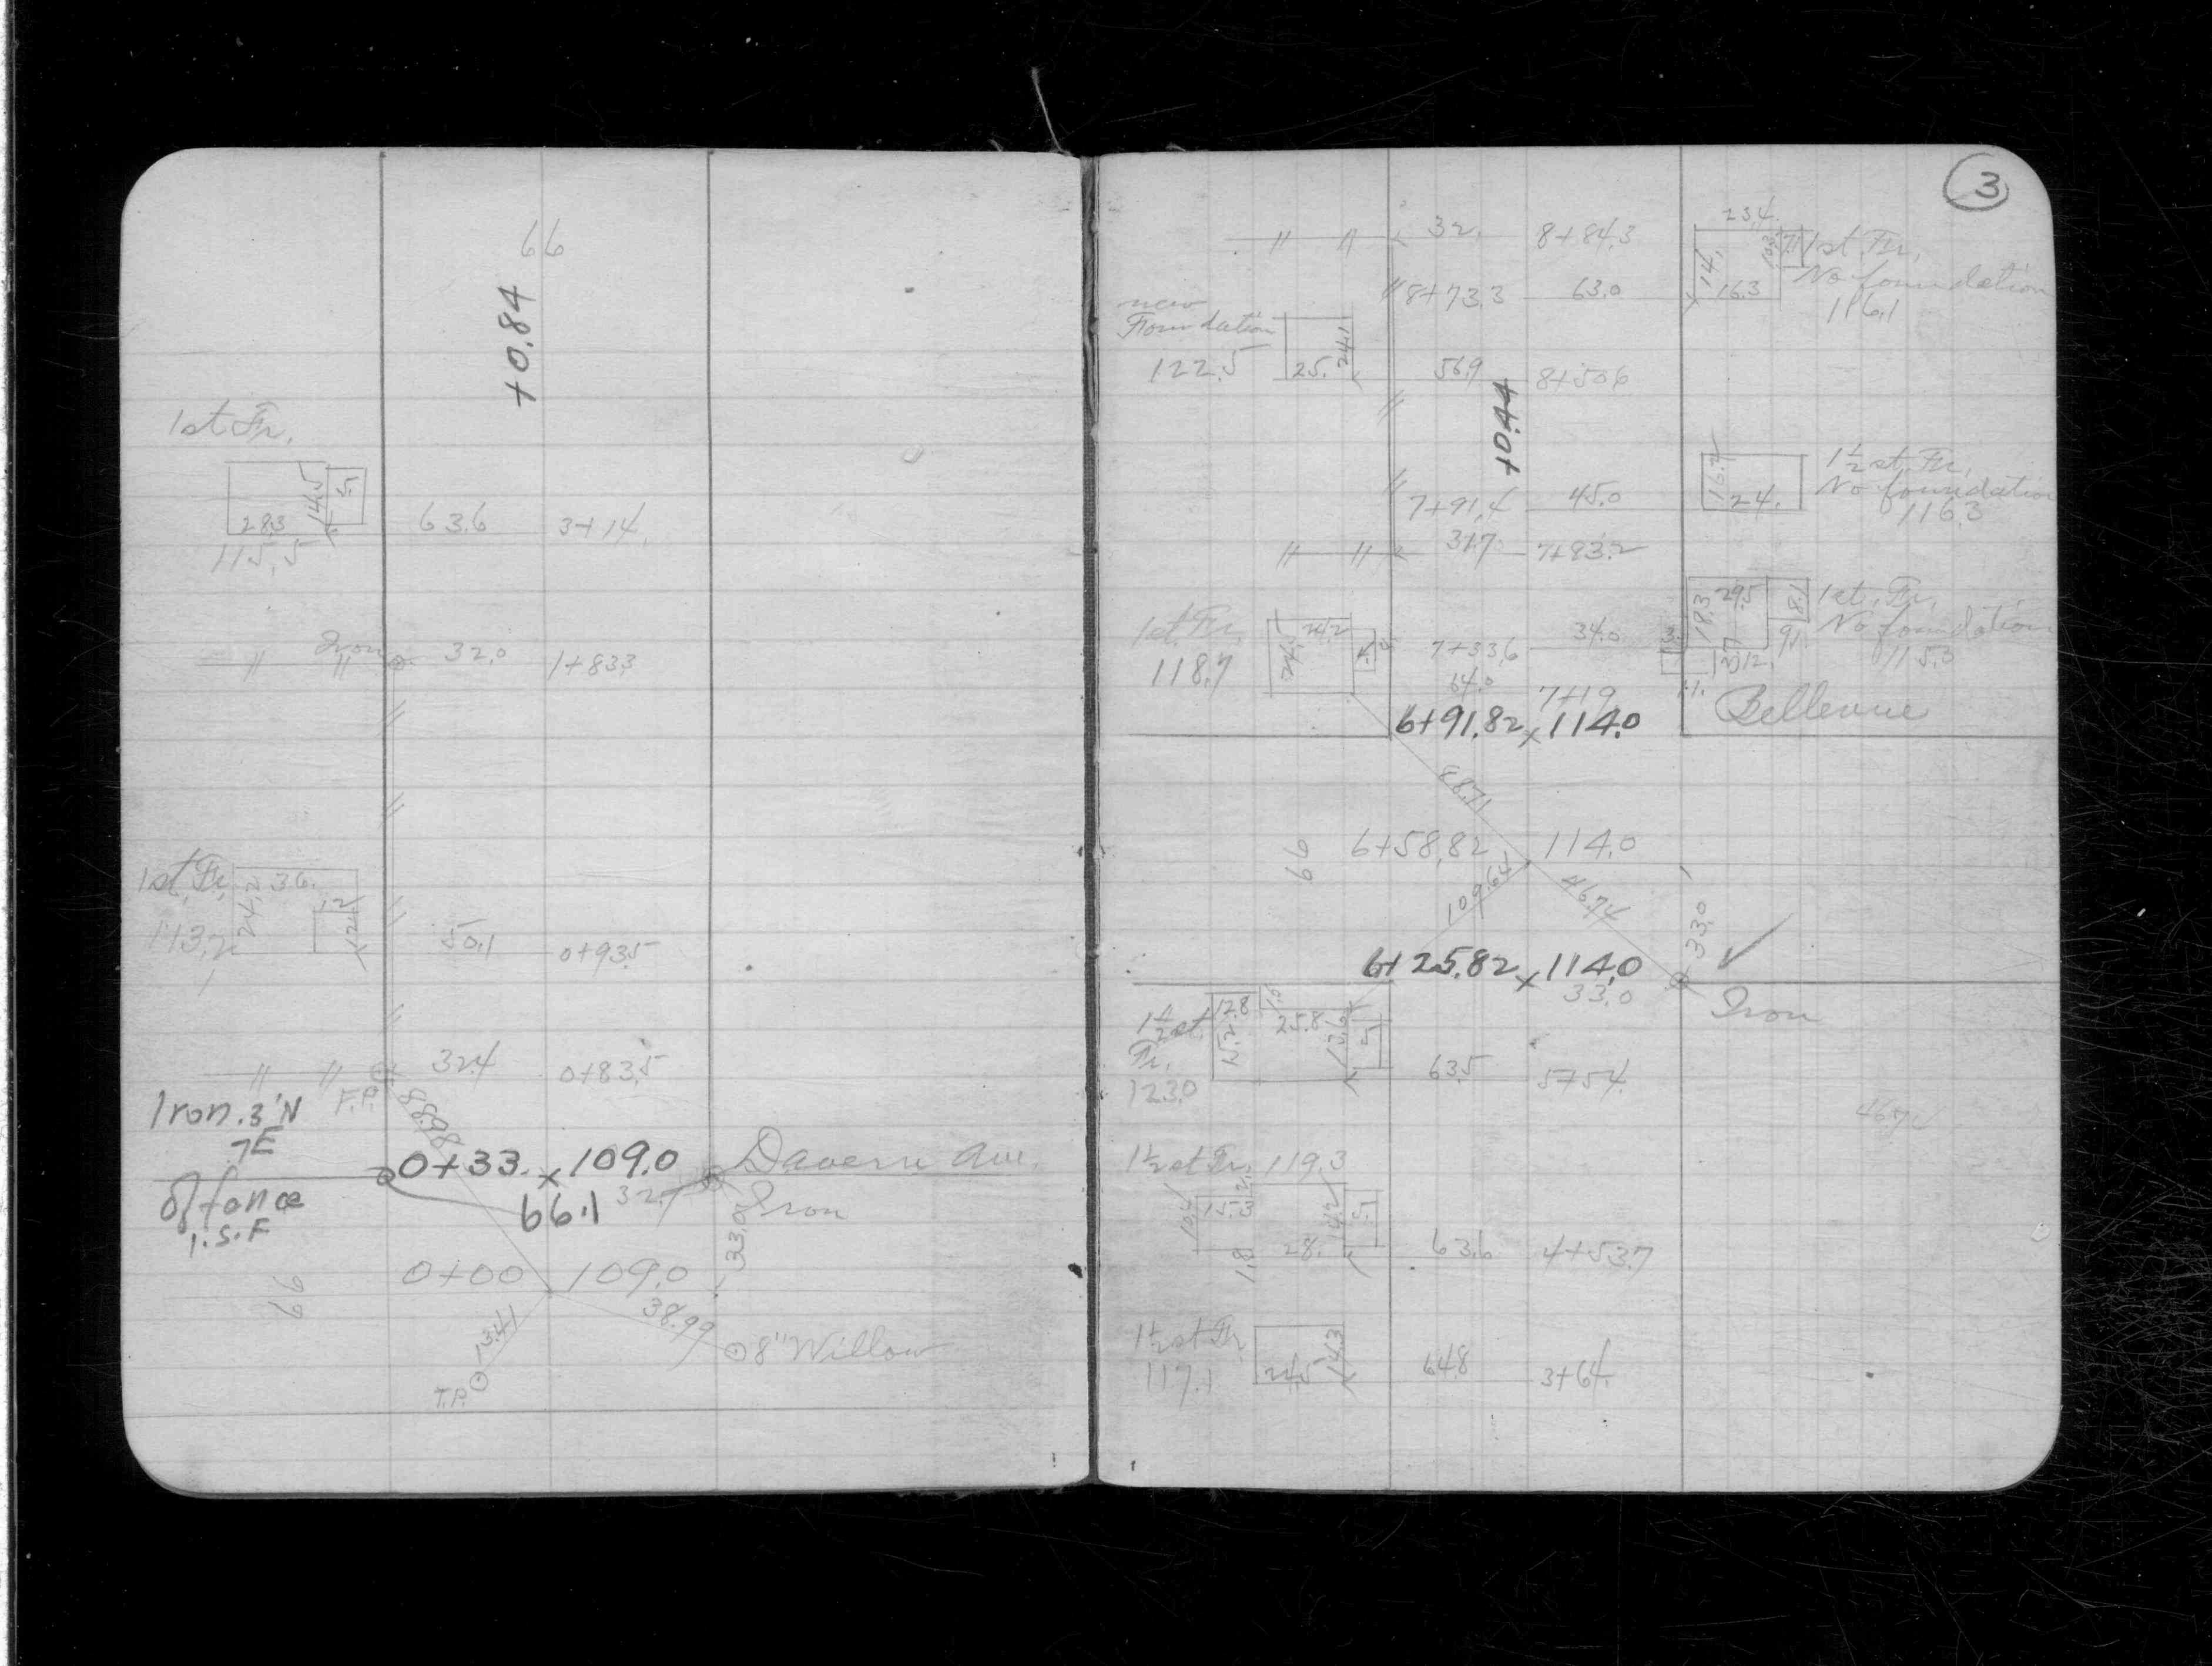 66
+0.84
1st Fr.
28.3 14.5 5.1
115.5
63.6 3+14.
Iron
" " 32.0 1+83.3
1st Fr. 24.2 36.
12 12.
113.2
50.1 0+93.5
" " 32.4 0+83.5
F.P. 88.98
Iron .3'N
.7E
0+33. x 109.0 Davern Ave.
66.1 32.7 Iron
of fence
1.S.F
33.0
66
0+00 109.0
73.41 38.99
8" Willow
T.P.
3
" " 32. 8+84.3
23.4
14. 16.3 7.1
1st Fr.
No foundation
116.1
8+73.3 63.0
new
Foundation
122.5 25. 24.1
56.9 8+50.6
+0.44
16.4 24.
1½ st. Fr.
No foundation
116.3
7+91.4 45.0
" " 31.7 7+83.2
18.3 29.5 8.1
9.1
12.
1st. Fr.
No foundation
115.3
1st Fr.
118.7
24.5 24.2
7+33.6 34.0
64.0 7+19
6+91.82 x 114.0
Bellevue
88.71
66
6+58.82 114.0
109.64 46.74
33.0
6+25.82 x 114.0
33.0
Iron
1½ st.
Fr.
123.0
12.8 15.2 25.8 13.6 5.1
63.5 5+54.
46.74
1½ st Fr. 119.3
10.4 15.1 14.2 5.1
1.8 28.
63.6 4+53.7
1½ st Fr
117.1
24.5 14.3
64.8 3+64.